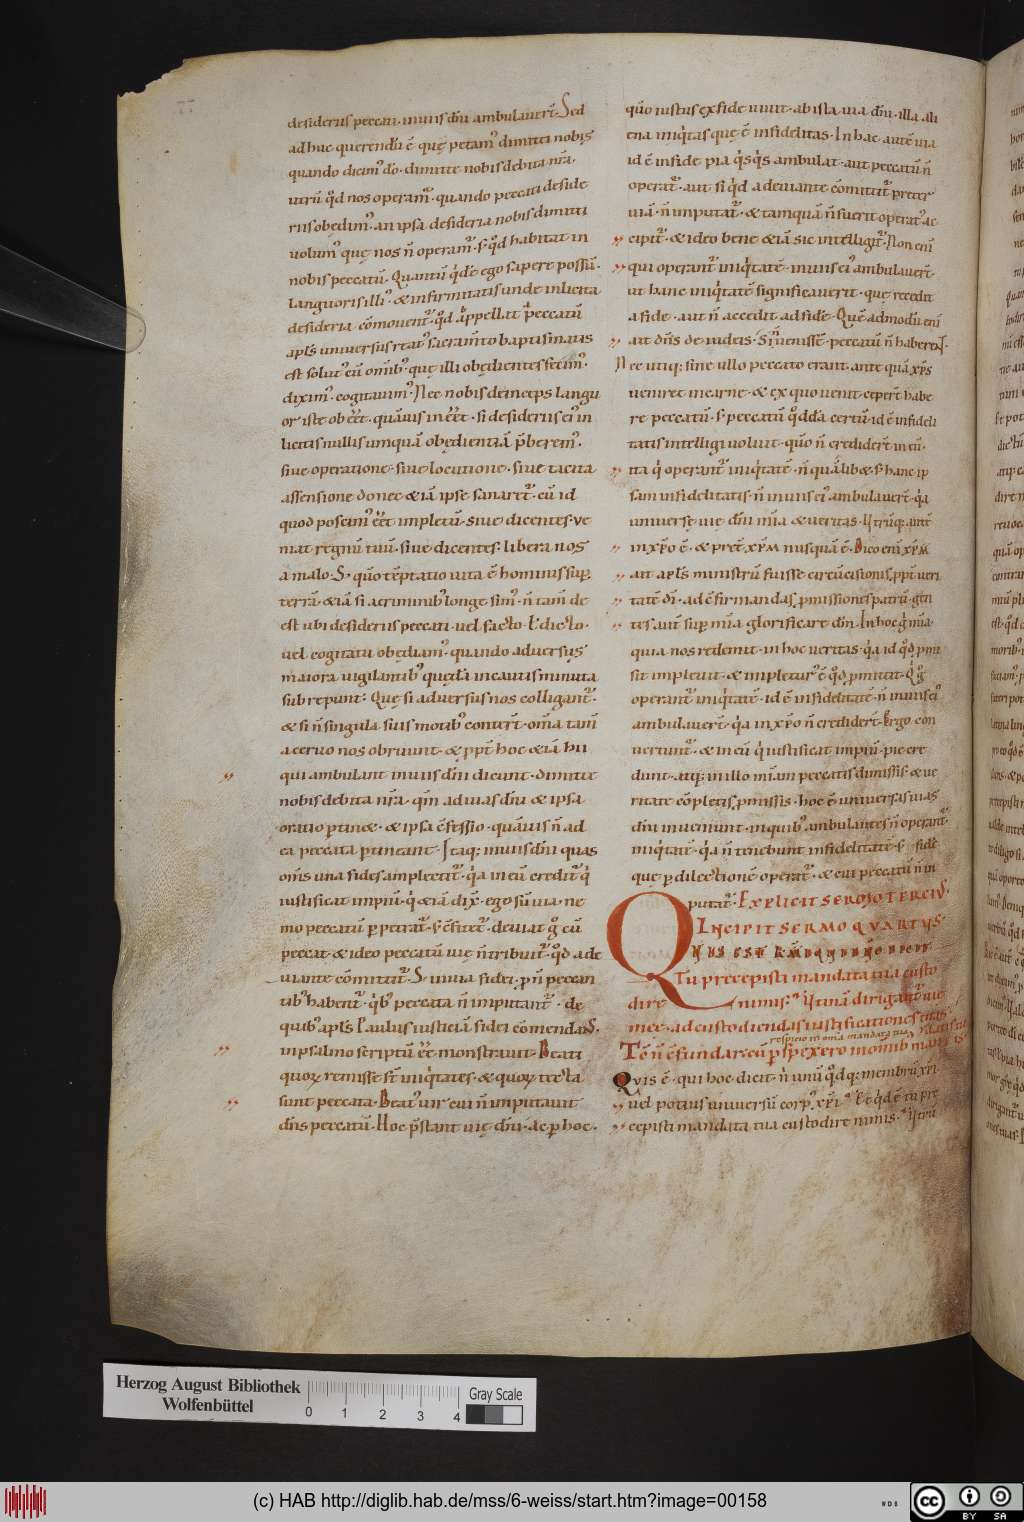 desideriis peccati inuiis dñi ambulauer̄t. Sed
adhuc querendū ē quę petam᷒ dimitti nobis
quando dicim᷒ dō. dimitte nobis debita nr̄a.
utrū qd nos operam᷒. quando peccati deside
riis obędim᷒. an ipsa desideria nobis dimitti
uolum᷒ quę nos ñ operam᷒. s; qd habitat in
nobis peccatū. Quantū qdē ego sapere possū.
languoris illi᷒. & infirmitatis unde inlicita
desideria cōmouent᷒. qd appellat peccatū
apls uniuersus reat᷒ sacramto baptismatis
est solut᷒ cū omib᷒ quę illi obędientes fecim᷒.
dixim᷒. cogitauim᷒. Nec nobis deinceps langu
or iste obeēt. quāuis ineēt. si desideriis ei᷒ in
licitis nullis umquā obędientiā pberem᷒.
siue operatione. siue locutione. siue tacita
assensione donec &iā ipse sanaret᷒. cū id
quod poscim᷒ eēt impletū. siue dicentes. ue
niat regnū tuū. siue dicentes. libera nos
a malo. S; qūo tēptatio uita ē hominis sup
terrā. &iā si acriminib᷒ longe sim᷒. ñ tam̄ de
est ubi desideriis peccati uel facto. ł dicto.
uel cogitatu obędiam᷒. quando aduersus
maiora uigilantib᷒ quędā incautis minuta
subrepunt. Quę si aduersus nos colligant᷒.
& si ñ singula suis motib᷒ conterūt. oma tam̄
aceruo nos obruunt. & ppt hoc &iā hii
qui ambulant inuiis dñi dicunt. dimitte
nobis debita nr̄a. qm̄ ad uias dñi & ipsa
oratio ptinet. & ipsa cfessio. quāuis ñ ad
ea peccata ptineant. Itaq; inuiis dñi quas
om̄s una fides amplectit᷒. qa in eū credit᷒ q
iustificat impiū. q &iā dix̄. ego sū uia. ne
mo peccatū ppetrat᷒. s; cfitet᷒. deuiat g cū
peccat. & ideo peccatū uię ñ tribuit᷒. qd a de
uiante cōmittit᷒. S; inuia fidei. p ñ peccan
tib᷒ habent᷒. qb᷒ peccata ñ imputant᷒. de
quib᷒ apls Paulus iusticiā fidei cōmendans.
inpsalmo scriptū eēt monstrauit. Beati
quorꝝ remissę st iniqtates. & quorꝝ tecta
sunt peccata. Beat᷒ uir cui ñ imputauit
dñs peccatū. Hoc pstant uię dñi. ac p hoc.
qūo iustus exfide uiuit. ab ista uia dñi. illa ali
ena iniqtas quę ē infidelitas. In hac autē uia
id ē in fide pia qsqs ambulat. aut peccatū ñ
operat᷒. aut si qd adeuiante cōmittit᷒ preter
uiā. ñ imputat᷒. & tamquā ñ fuerit operat᷒ ac
cipit᷒. & ideo bene &iā sic intelligit᷒. Non enī
qui operant᷒ iniqtatē. inuiis ei᷒ ambulauer̄t.
ut hanc iniqtatē significauerit. quę recedit
a fide. aut ñ accedit ad fidē. Quē admodū enī
ait dñs de iudeis. Si ñ uenissē. peccatū ñ haberēt.
Nec utiq; sine ullo peccato erant. ante quā xp̄s
ueniret incarne. & ex quo uenit ceper̄t habe
re peccatū. s; peccatū qddā certū. id ē infideli
tatis intelligi uoluit. qūo ñ crediderit in eū.
ita q operant᷒ iniqtatē. ñ quālib&. s; hanc ip
sam infidelitatis. ñ inuiis ei᷒ ambulauer̄t. qa
uniuersę uię dñi mīa & ueritas. Utrūq; autē
inxp̄o ē. & pret xp̄m nusquā ē. Dico enī xp̄m
ait apls ministrū fuisse circūcisionis. ppt ueri
tatē di. ad cfirmandas pmissiones patrū. gen
tes aut̄ sup mīa glorificare dñm. In hoc g mīa
quia nos redemit. in hoc ueritas. qa id qd pmi
sit impleuit. & impletur᷒ ē qd pmittit. Q g
operant᷒ iniqtatē. id ē infidelitatē. ñ inuiis ei᷒
ambulauer̄t. qa inxp̄o ñ credider̄t. Ergo con
uertunt᷒. & in eū q iustificat impiū. pie cre
dunt. atq; in illo mīam peccatis dimissis. & ue
ritatē cōpletis pmissis. hoc ē uniuersas uias
dñi inueniunt. inquib᷒ ambulantes ñ operant᷒
iniqtatē. qa ñ tenebunt infidelitatē. s; fidē
que p dilectionē operat᷒. & cui peccatū ñ in
putat᷒. Explicit sermo tercius.
Incipit sermo quartus
Tu precepisti mandata tua custo
dire nimis. Utinā dirigant᷒ uię
meę. ad custodiendas iustificationes tuas.
respicio in om̄a mandata tua
Tc̄ ñ cfundar. cū pspexero in omib mandatis tuis
Quis ē. qui hoc dicit. ñ unū qdq; membrū xp̄i
uel potius uniuersū corp᷒ xp̄i. Et qd ē tu pre
cepisti mandata tua custodire nimis. Utrū
Herzog August Bibliothek
Wolfenbüttel
0 1 2 3 4
Gray Scale
(c) HAB http://diglib.hab.de/mss/6-weiss/start.htm?image=00158
CC BY SA